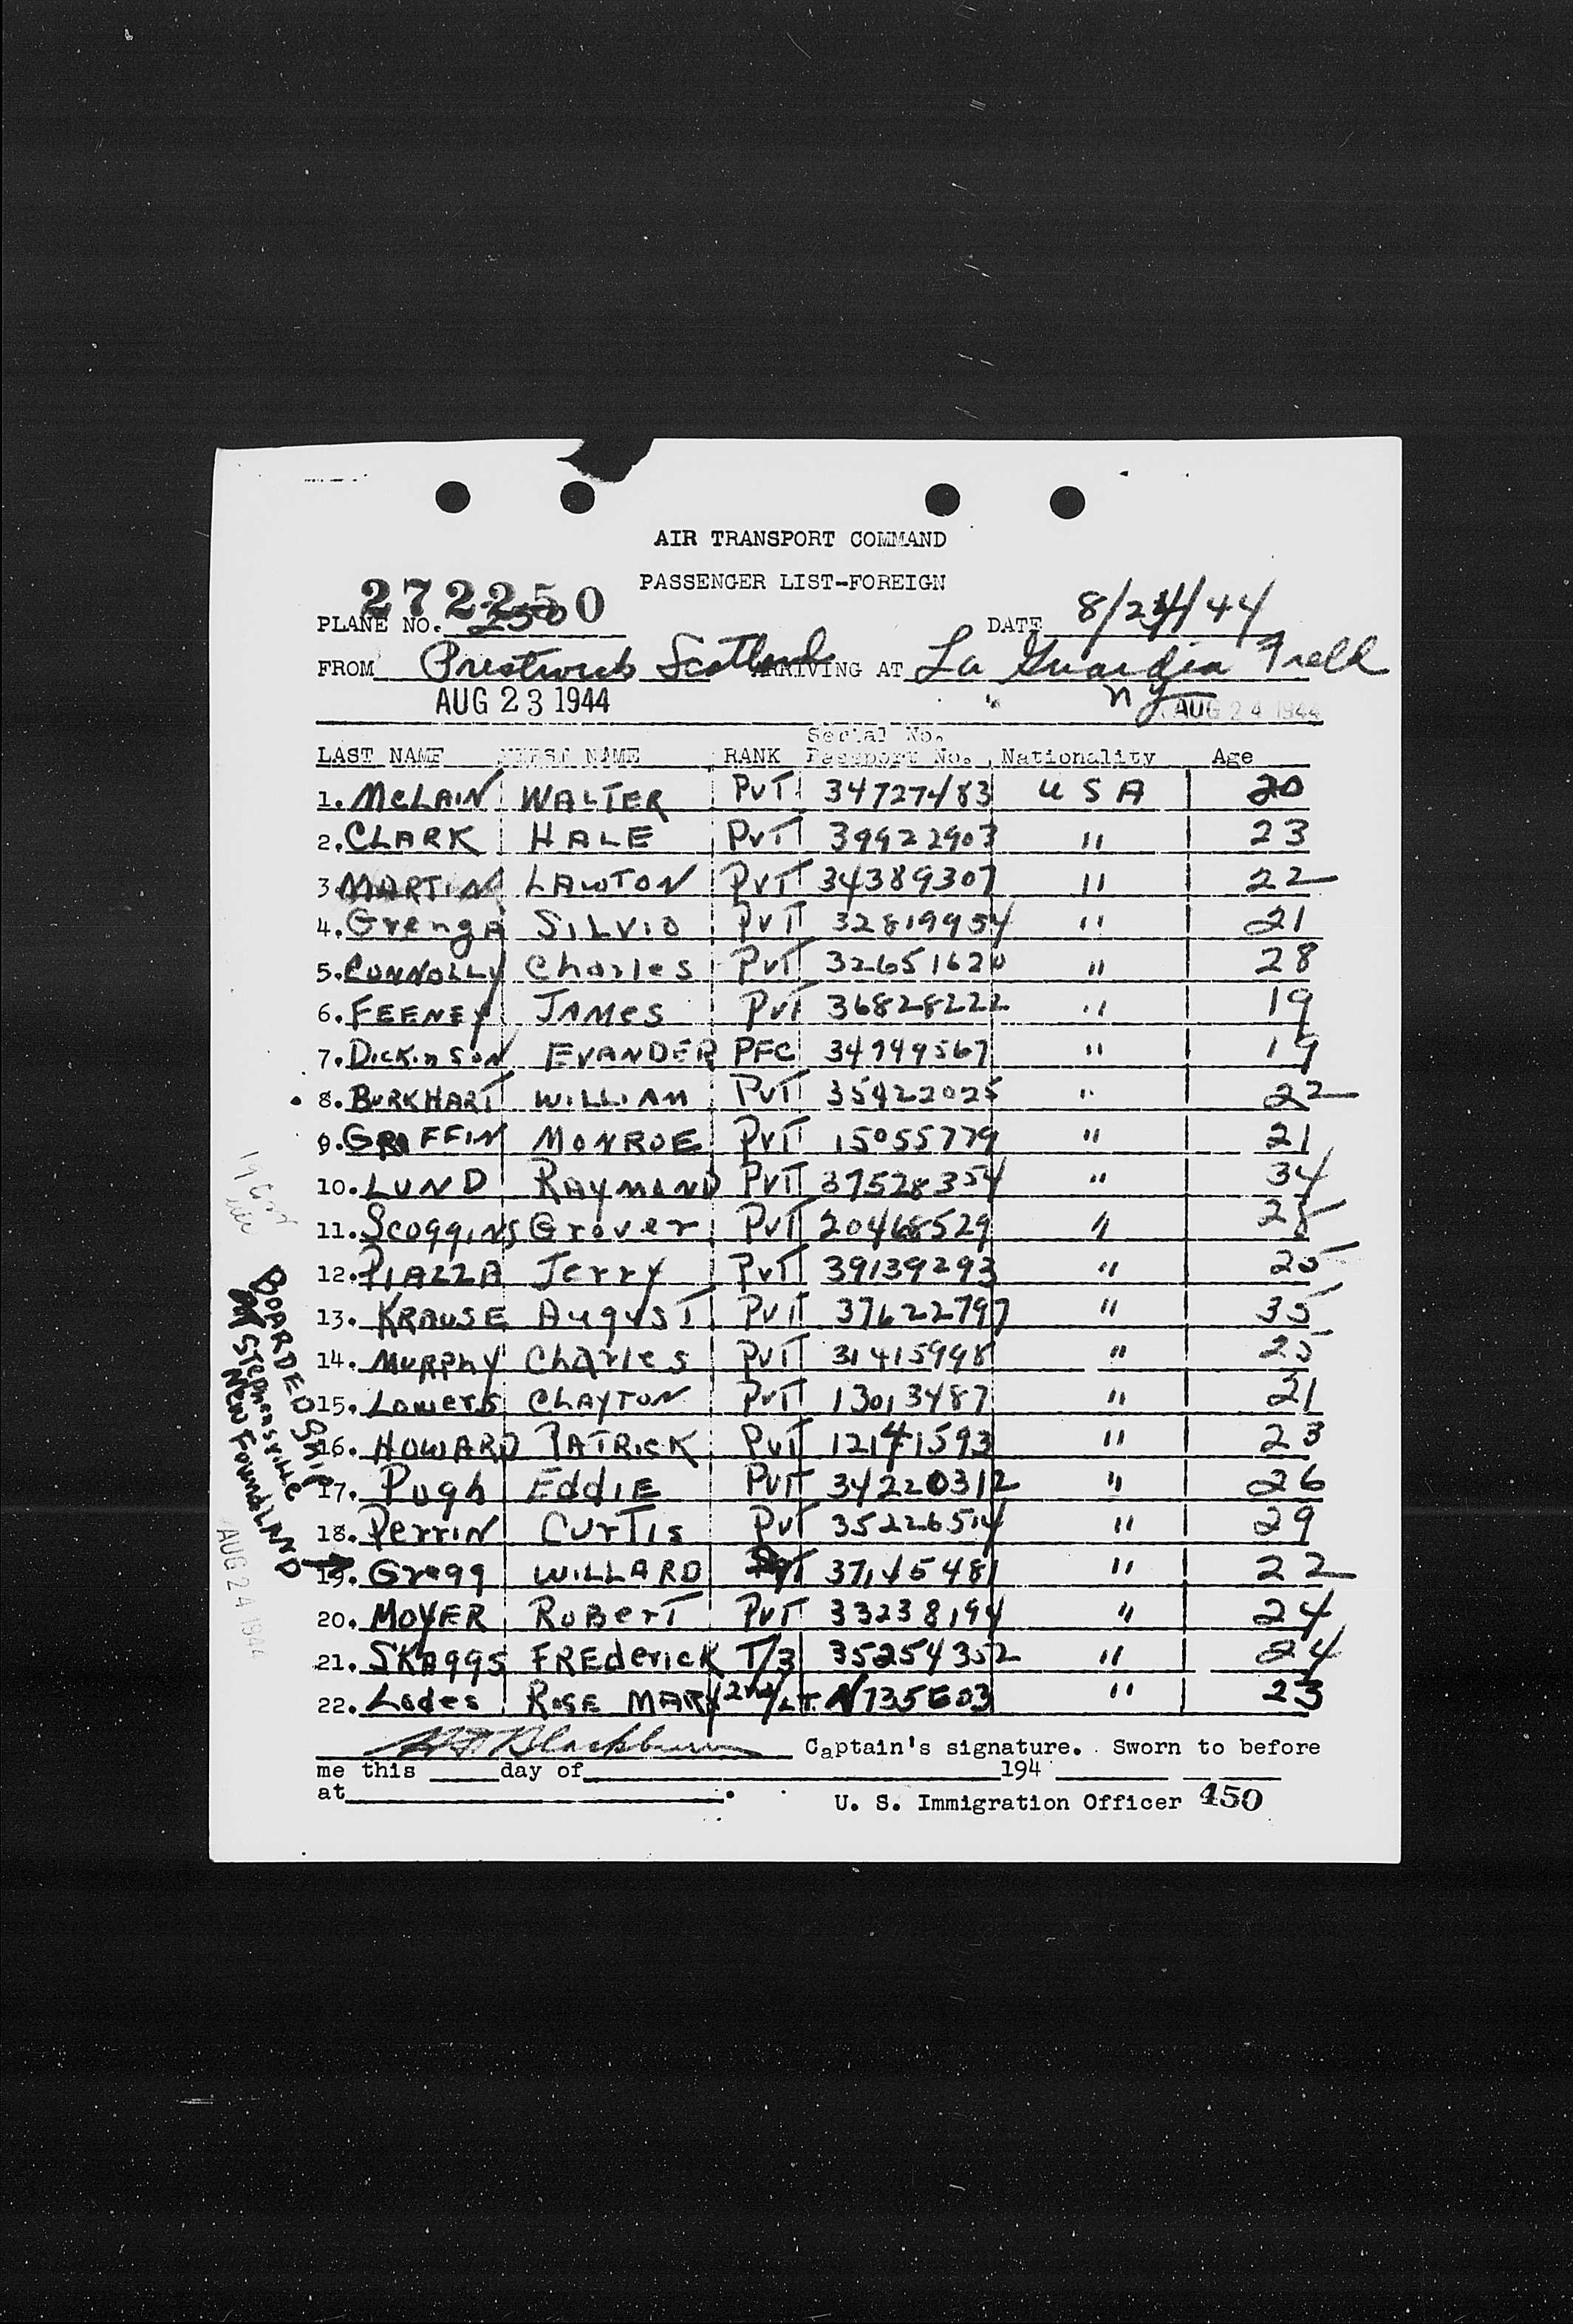 AIR TRANSPORT COMMAND
PASSENGER LIST-FOREIGN
272250
PLANE NO. 250 DATE 8/24/44
FROM Prestwick Scotland ARRIVING AT La Guardia Field
AUG 23 1944 NY AUG 24 1944
Serial No.
LAST NAME FIRST NAME RANK Passport No. Nationality Age
1. McLAIN WALTER PVT 34727483 USA 20
2. CLARK HALE PvT 39922903 " 23
3. MARTIN LAWTON PVT 34389307 " 22
4. Grenga SILVIO PVT 32819954 " 21
5. CONNOLLY Charles PvT 32651620 " 28
6. FEENEY JAMES PvT 36828222 " 19
7. DICKINSON EVANDER PFC 34949567 " 19
8. BURKHART WILLIAM PvT 35422025 " 22
9. GRIFFIN MONROE PVT 15055779 " 21
10. LUND RAYMOND PVT 37528354 " 34
11. Scoggins Grover PVT 20468529 " 25
12. PIAZZA Jerry PvT 39139293 " 25
13. KRAUSE AuguST PVT 37622797 " 35
14. MURPHY Charles PVT 31415998 " 25
15. Lowers CLAYTON PVT 13013487 " 21
16. HOWARD PATRICK PVT 12141593 " 23
17. Pugh EddIE PVT 34220312 " 26
18. Perrin CurTis PvT 35226514 " 29
19. Gregg WILLARD PvT 37145481 " 22
20. MOYER RoBerT PVT 33238194 " 24
21. SKAggS FREderick T/3 35254352 " 24
22. Lodes ROSE MARY 2nd/LT. N735603 " 23
Blackburn Captain's signature. Sworn to before
me this day of 194
at . U. S. Immigration Officer 450
BOARDED SHIP
at STEPHENSVILLE
NEW FoundLAND
AUG 24 1944